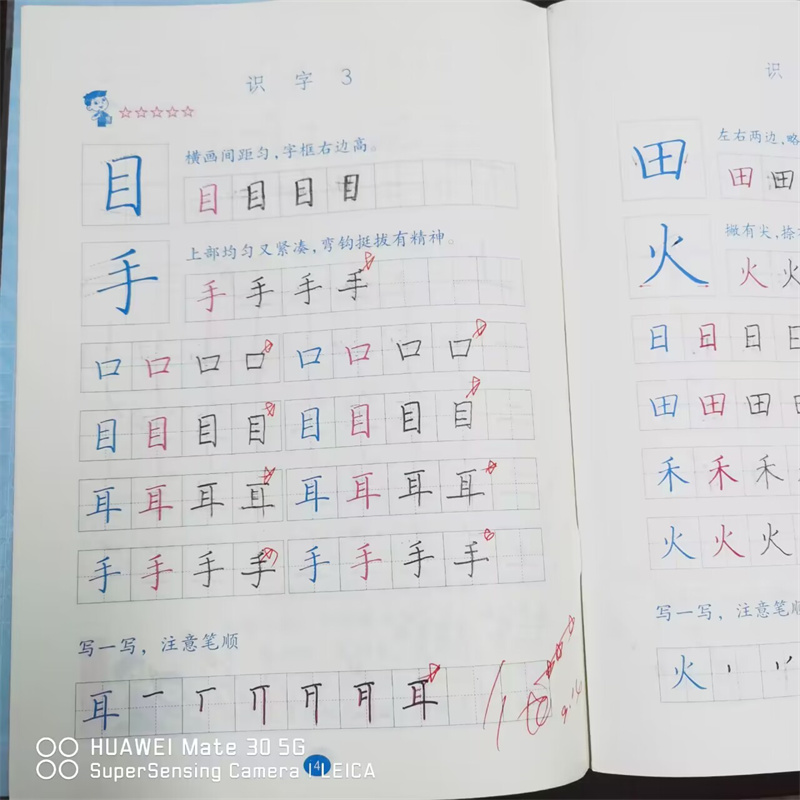 识 字 3
☆☆☆☆☆
目
横画间距匀,字框右边高。
目 目 目 目
手
上部均匀又紧凑,弯钩挺拔有精神。
手 手 手 手
口 口 口 口 口 口 口 口
目 目 目 目 目 目 目 目
耳 耳 耳 耳 耳 耳 耳 耳
手 手 手 手 手 手 手 手
写一写,注意笔顺
耳 一 丅 丌 耳
9.14
4
识
田
左右两边,略
田 田
火
撇有尖,捺
火 火
日 日 日 日
田 田 田 田
禾 禾 禾
火 火 火
写一写,注意笔顺
火 丶 丷
HUAWEI Mate 30 5G
SuperSensing Camera | LEICA